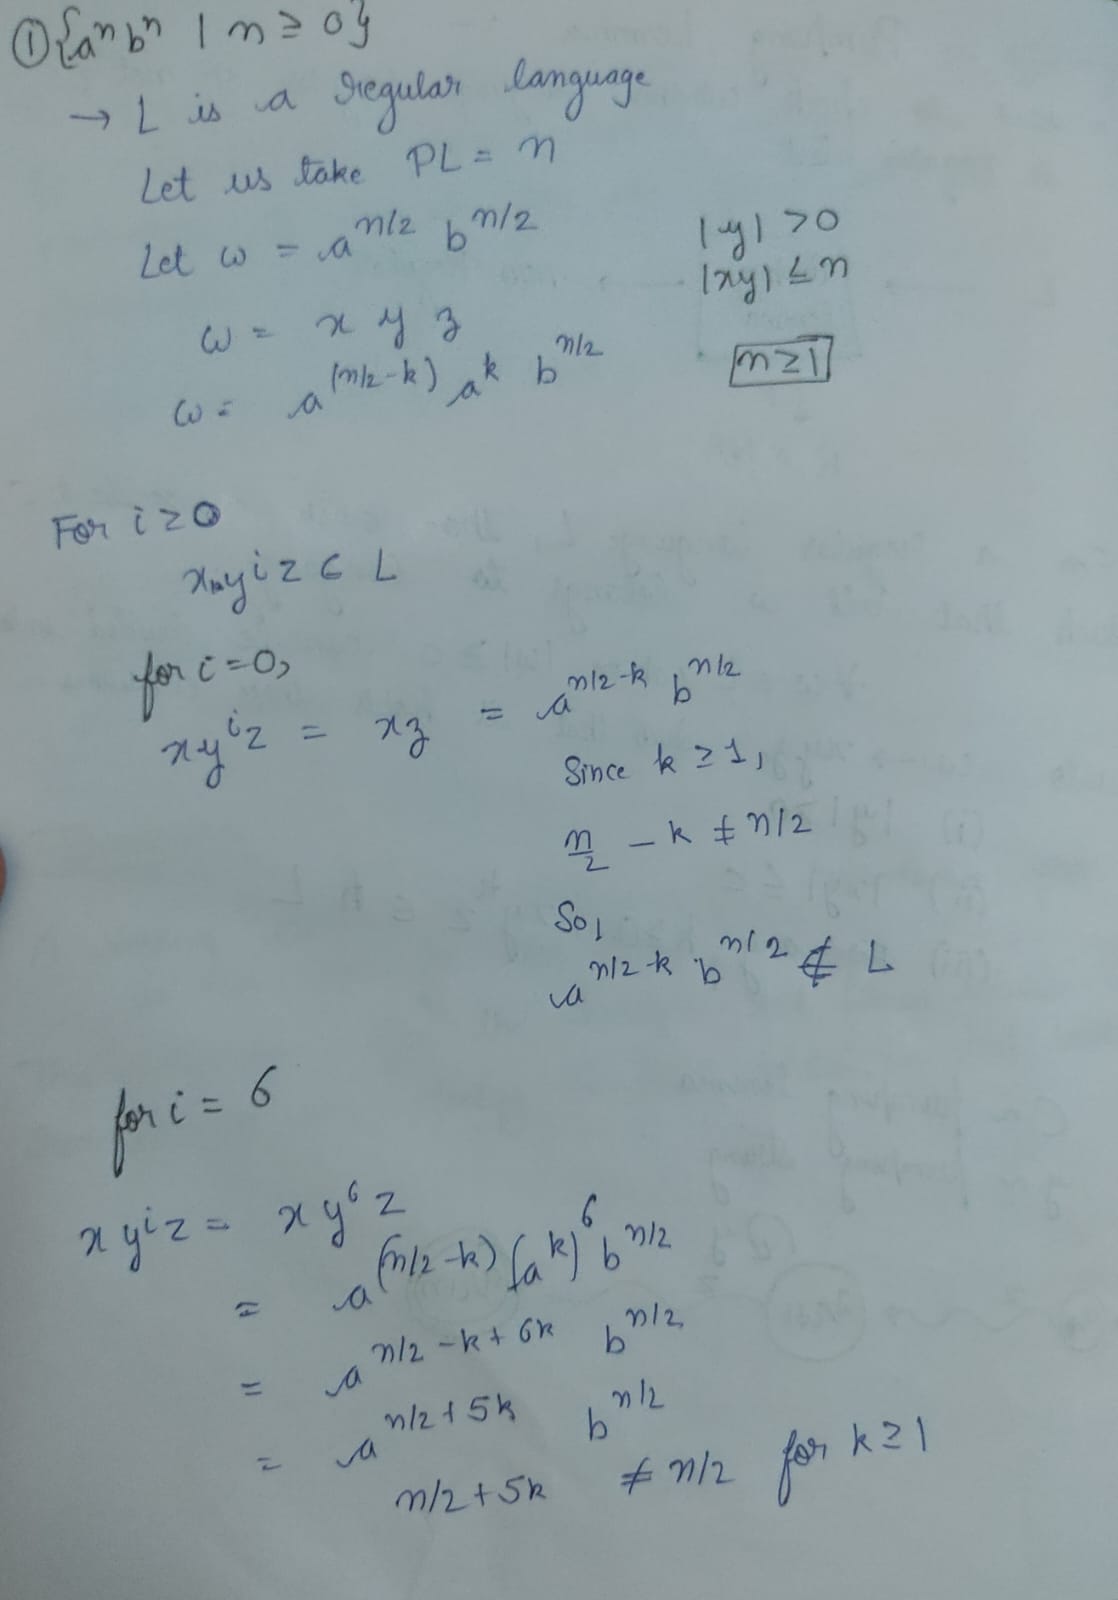 ① {aⁿ bⁿ | n ≥ 0}
→ L is a regular language
Let us take PL = n
Let ω = a^n/2 b^n/2
|y| > 0
|xy| ≤ n
n ≥ 1
ω = x y z
ω = a^(n/2-k) a^k b^n/2
For i ≥ 0
xyⁱz ∈ L
for i=0,
xyⁱz = xz = a^n/2-k b^n/2
Since k ≥ 1,
n/2 - k ≠ n/2
So,
a^n/2-k b^n/2 ∉ L
for i = 6
xyⁱz = xy⁶z
= a^(n/2-k) (a^k)^6 b^n/2
= a^n/2-k+6k b^n/2
= a^n/2+5k b^n/2
n/2+5k ≠ n/2 for k ≥ 1